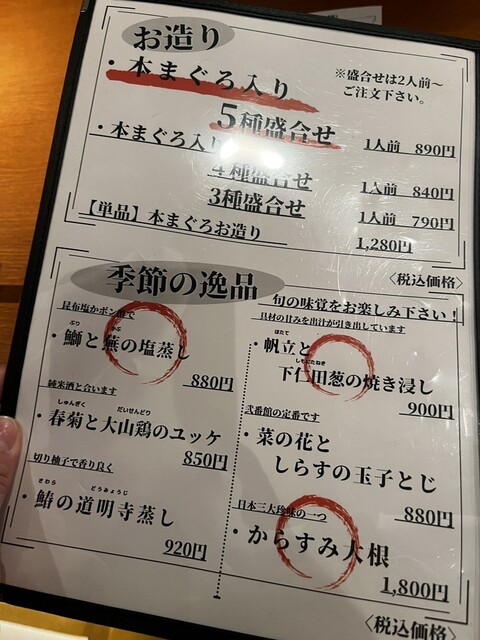 お造り
・本まぐろ入り
5種盛合せ
※盛合せは2人前～
ご注文下さい。
1人前 890円
・本まぐろ入り
4種盛合せ
1人前 840円
3種盛合せ
1人前 790円
【単品】本まぐろお造り
1,280円
〈税込価格〉
季節の逸品
旬の味覚をお楽しみ下さい！
昆布塩かポン酢で
ぶり かぶ
・鰤と蕪の塩蒸し
880円
純米酒と合います
しゅんぎく だいせんどり
・春菊と大山鶏のユッケ
850円
切り柚子で香り良く
さわら どうみょうじ
・鰆の道明寺蒸し
920円
具材の甘みを出汁が引き出しています
ほたて
・帆立と
しもにたねぎ
下仁田葱の焼き浸し
900円
弐番館の定番です
・菜の花と
しらすの玉子とじ
880円
日本三大珍味の一つ
・からすみ大根
1,800円
〈税込価格〉